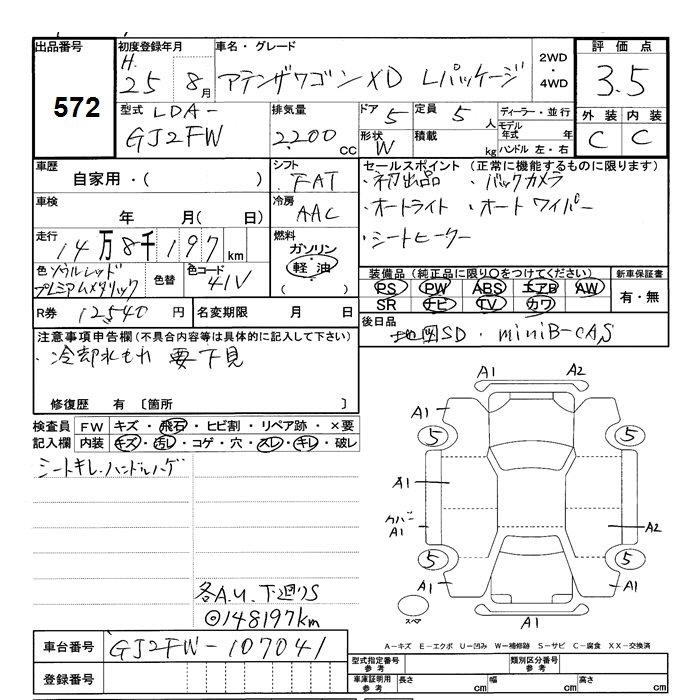 出品番号
572
初度登録年月
H.
25 8月
車名・グレード
アテンザワゴン XD Lパッケージ
2WD
・
4WD
評価点
3.5
外装 内装
C C
型式 LDA-
GJ2FW
排気量
2,200 cc
ドア 5
形状 W
定員 5 人
積載 kg
ディーラー・並行
モデル年式 年
ハンドル 左・右
車歴
自家用・( )
シフト
FAT
セールスポイント (正常に機能するものに限ります)
・初出品 ・バックカメラ
・オートライト ・オートワイパー
・シートヒーター
車検
年 月( 日)
冷房
AAC
走行
14万8千197km
燃料
ガソリン
軽油
( )
色 ソウルレッド
プレミアムメタリック
色替
色コード
41V
装備品 (純正品に限り○をつけてください)
PS PW ABS エアB AW
SR ナビ TV カワ
新車保証書
有・無
R券 12,540 円
名変期限 月 日
後日品
地図SD・miniB-CAS
注意事項申告欄(不具合内容等は具体的に記入して下さい)
・冷却水もれ 要下見
修復歴 有〔箇所 〕
検査員
記入欄
FW キズ・飛石・ヒビ割・リペア跡・×要
内装 キズ・汚レ・コゲ・穴・スレ・キレ・破レ
シートキレ・ハンドルハゲ
各A.U. 下廻りS
◎148197km
A1 A2
A1
5 5
A1
A1 A2
5 5
A1 A1
A1
スペア
A-キズ E-エクボ U-凹み W-補修跡 S-サビ C-腐食 XX-交換済
車台番号 GJ2FW-107041
登録番号
型式指定番号
参考
類別区分番号
参考
車庫証明用
参考
長さ cm 幅 cm 高さ cm